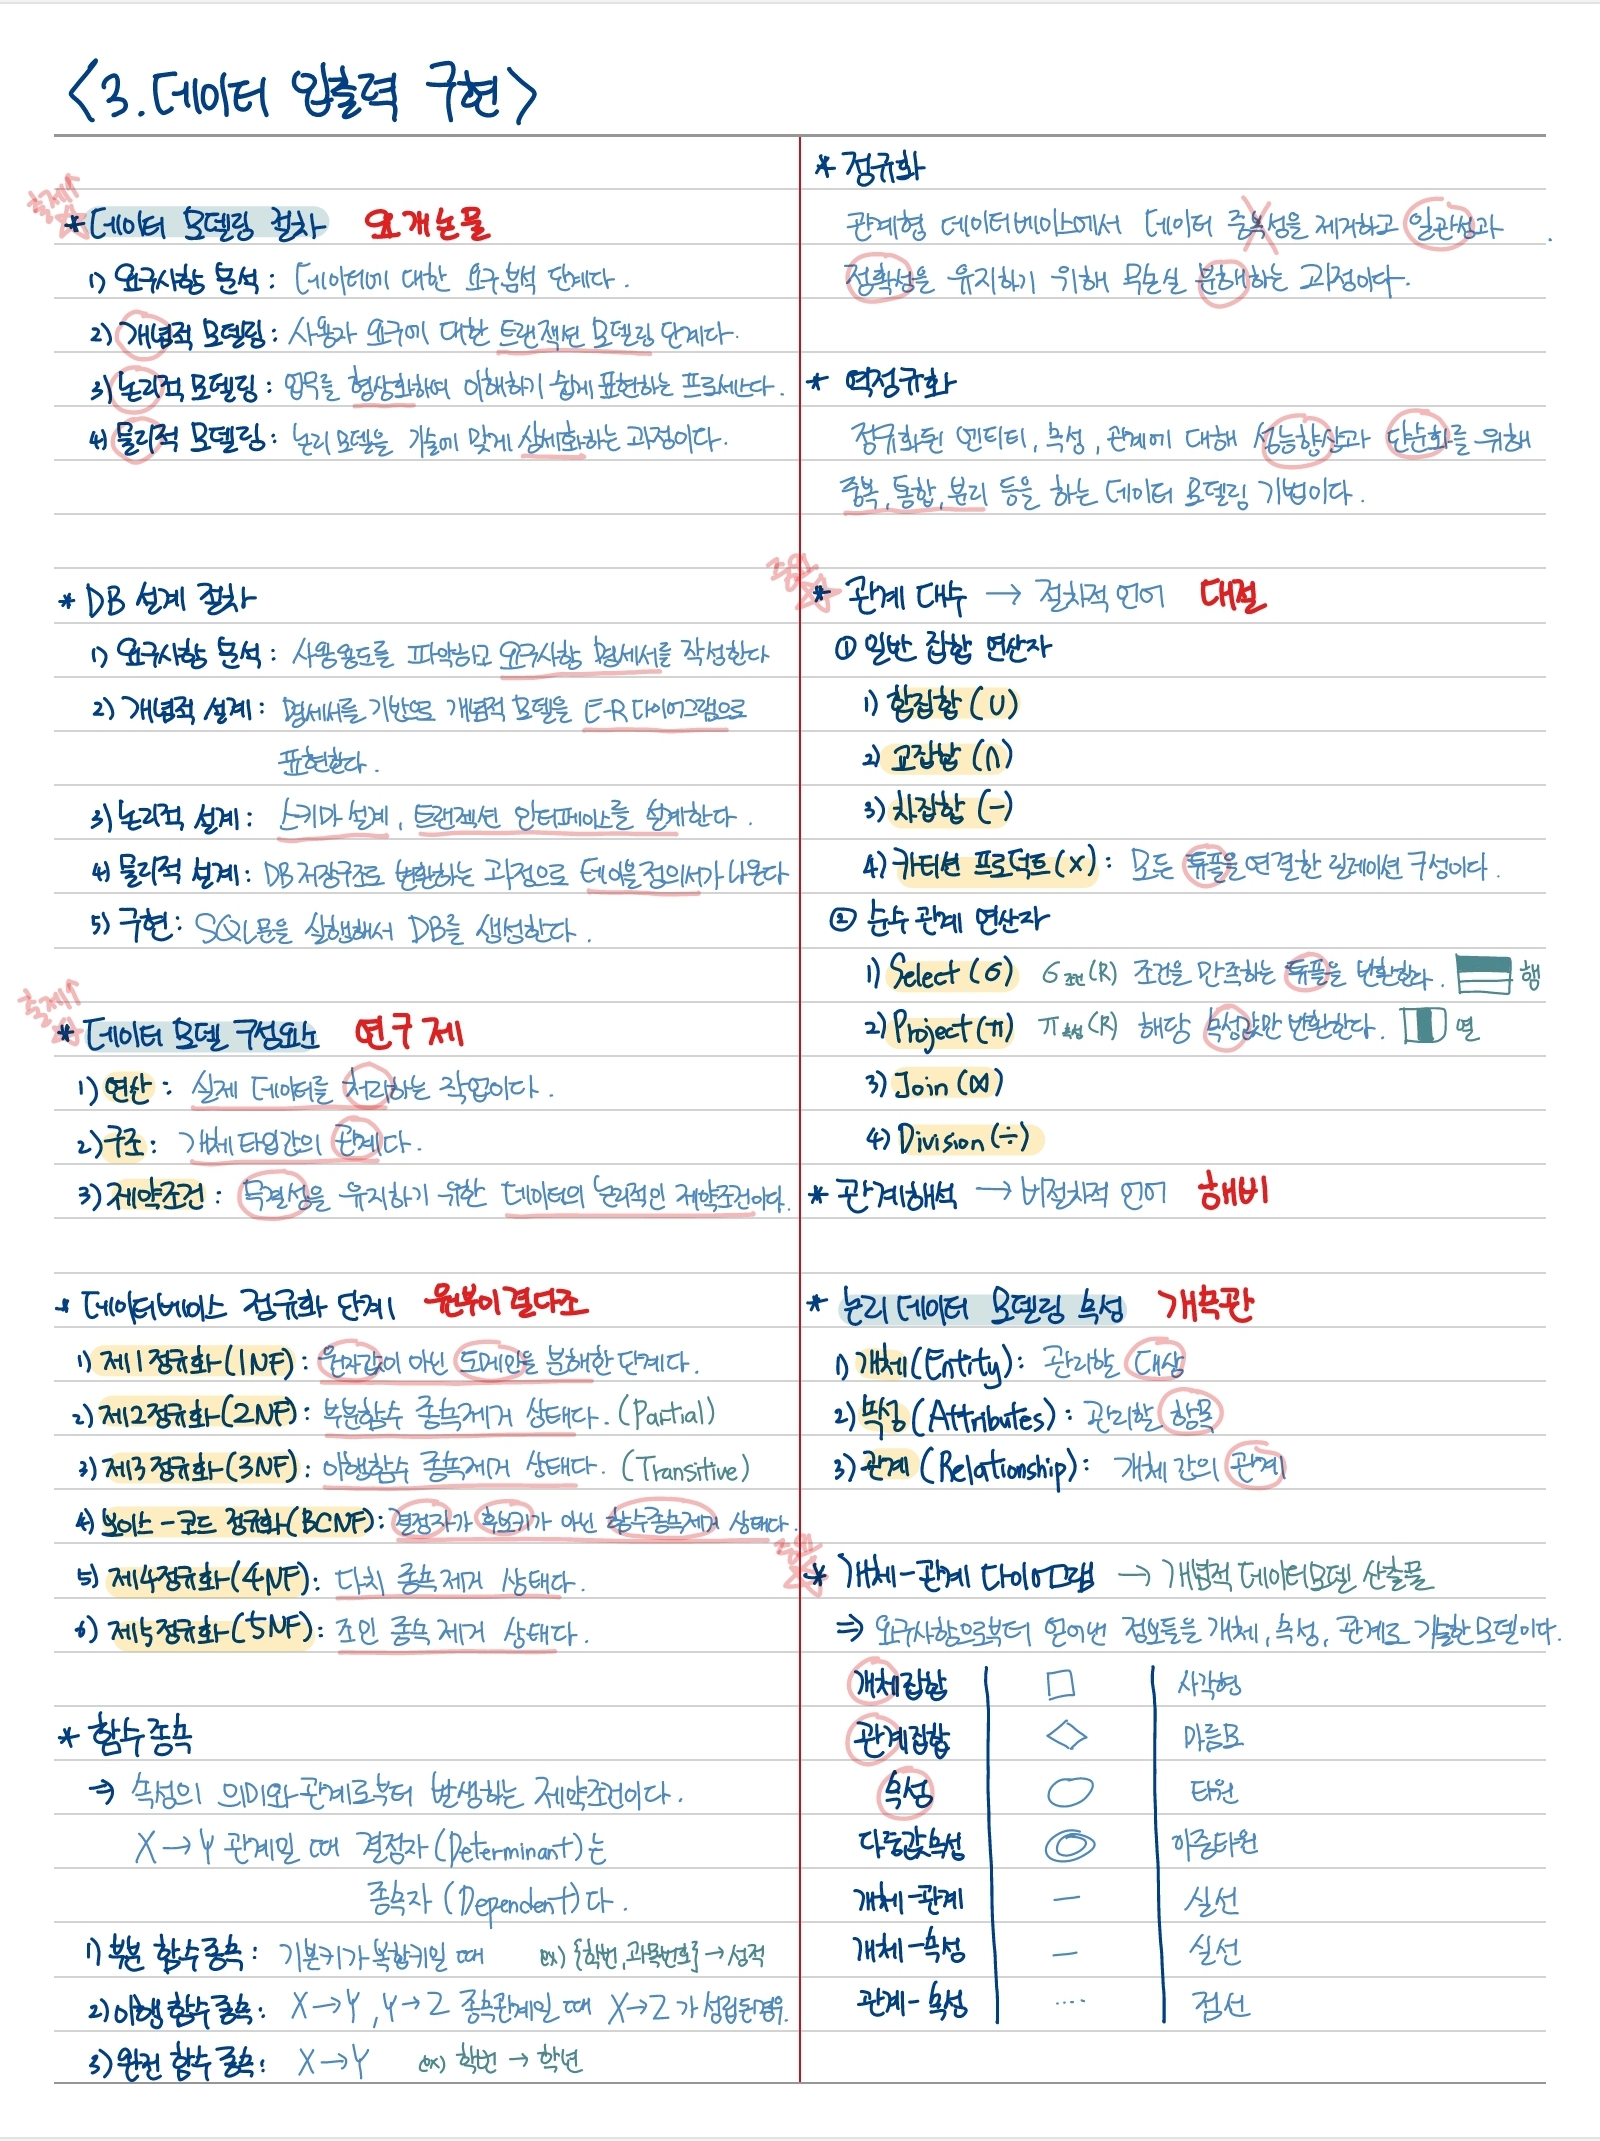 <3. 데이터 입출력 구현>
* 데이터 모델링 절차 요개논물
1) 요구사항 분석 : 데이터에 대한 요구분석 단계다.
2) 개념적 모델링 : 사용자 요구에 대한 트랜잭션 모델링 단계다.
3) 논리적 모델링 : 업무를 형상화하여 이해하기 쉽게 표현하는 프로세스다.
4) 물리적 모델링 : 논리 모델을 기술에 맞게 상세화하는 과정이다.
* DB 설계 절차
1) 요구사항 분석 : 사용용도를 파악하고 요구사항 명세서를 작성한다
2) 개념적 설계 : 명세서를 기반으로 개념적 모델을 E-R 다이어그램으로
표현한다.
3) 논리적 설계 : 스키마 설계, 트랜잭션 인터페이스를 설계한다.
4) 물리적 설계 : DB 저장구조로 변환하는 과정으로 테이블 정의서가 나온다
5) 구현 : SQL문을 실행해서 DB를 생성한다.
* 데이터 모델 구성요소 연구제
1) 연산 : 실제 데이터를 처리하는 작업이다.
2) 구조 : 개체 타입간의 관계다.
3) 제약조건 : 무결성을 유지하기 위한 데이터의 논리적인 제약조건이다.
* 데이터베이스 정규화 단계 원부이결다조
1) 제1정규화(1NF) : 원자값이 아닌 도메인을 분해한 단계다.
2) 제2정규화(2NF) : 부분함수 종속제거 상태다. (Partial)
3) 제3정규화(3NF) : 이행함수 종속제거 상태다. (Transitive)
4) 보이스-코드 정규화(BCNF) : 결정자가 후보키가 아닌 함수종속제거 상태다.
5) 제4정규화(4NF) : 다치 종속제거 상태다.
6) 제5정규화(5NF) : 조인 종속제거 상태다.
* 함수종속
⇒ 속성의 의미와 관계로부터 발생하는 제약조건이다.
X → Y 관계일 때 결정자(Determinant)는
종속자 (Dependent)다.
1) 부분 함수종속 : 기본키가 복합키일 때 ex) {학번, 과목번호} → 성적
2) 이행 함수종속 : X → Y, Y → Z 종속관계일 때 X → Z 가 성립된경우.
3) 완전 함수종속 : X → Y ex) 학번 → 학년
* 정규화
관계형 데이터베이스에서 데이터 중복성을 제거하고 일관성과
정확성을 유지하기 위해 무손실 분해하는 과정이다.
* 역정규화
정규화된 엔티티, 속성, 관계에 대해 성능향상과 단순화를 위해
중복, 통합, 분리 등을 하는 데이터 모델링 기법이다.
중요
* 관계 대수 → 절차적 언어 대절
① 일반 집합 연산자
1) 합집합 (∪)
2) 교집합 (∩)
3) 차집합 (-)
4) 카티션 프로덕트(×) : 모든 튜플을 연결한 릴레이션 구성이다.
② 순수 관계 연산자
1) Select (σ) σ조건(R) 조건을 만족하는 튜플을 반환한다. 행
2) Project (π) π속성(R) 해당 속성값만 반환한다. 열
3) Join (⋈)
4) Division (÷)
* 관계해석 → 비절차적 언어 해비
* 논리 데이터 모델링 속성 개속관
1) 개체(Entity) : 관리할 대상
2) 속성(Attributes) : 관리할 항목
3) 관계 (Relationship) : 개체 간의 관계
중요
* 개체-관계 다이어그램 → 개념적 데이터모델 산출물
⇒ 요구사항으로부터 얻어낸 정보들을 개체, 속성, 관계로 기술한 모델이다.
개체집합 □ 사각형
관계집합 ◇ 마름모
속성 타원
다중값속성 이중타원
개체-관계 — 실선
개체-속성 — 실선
관계-속성 .... 점선